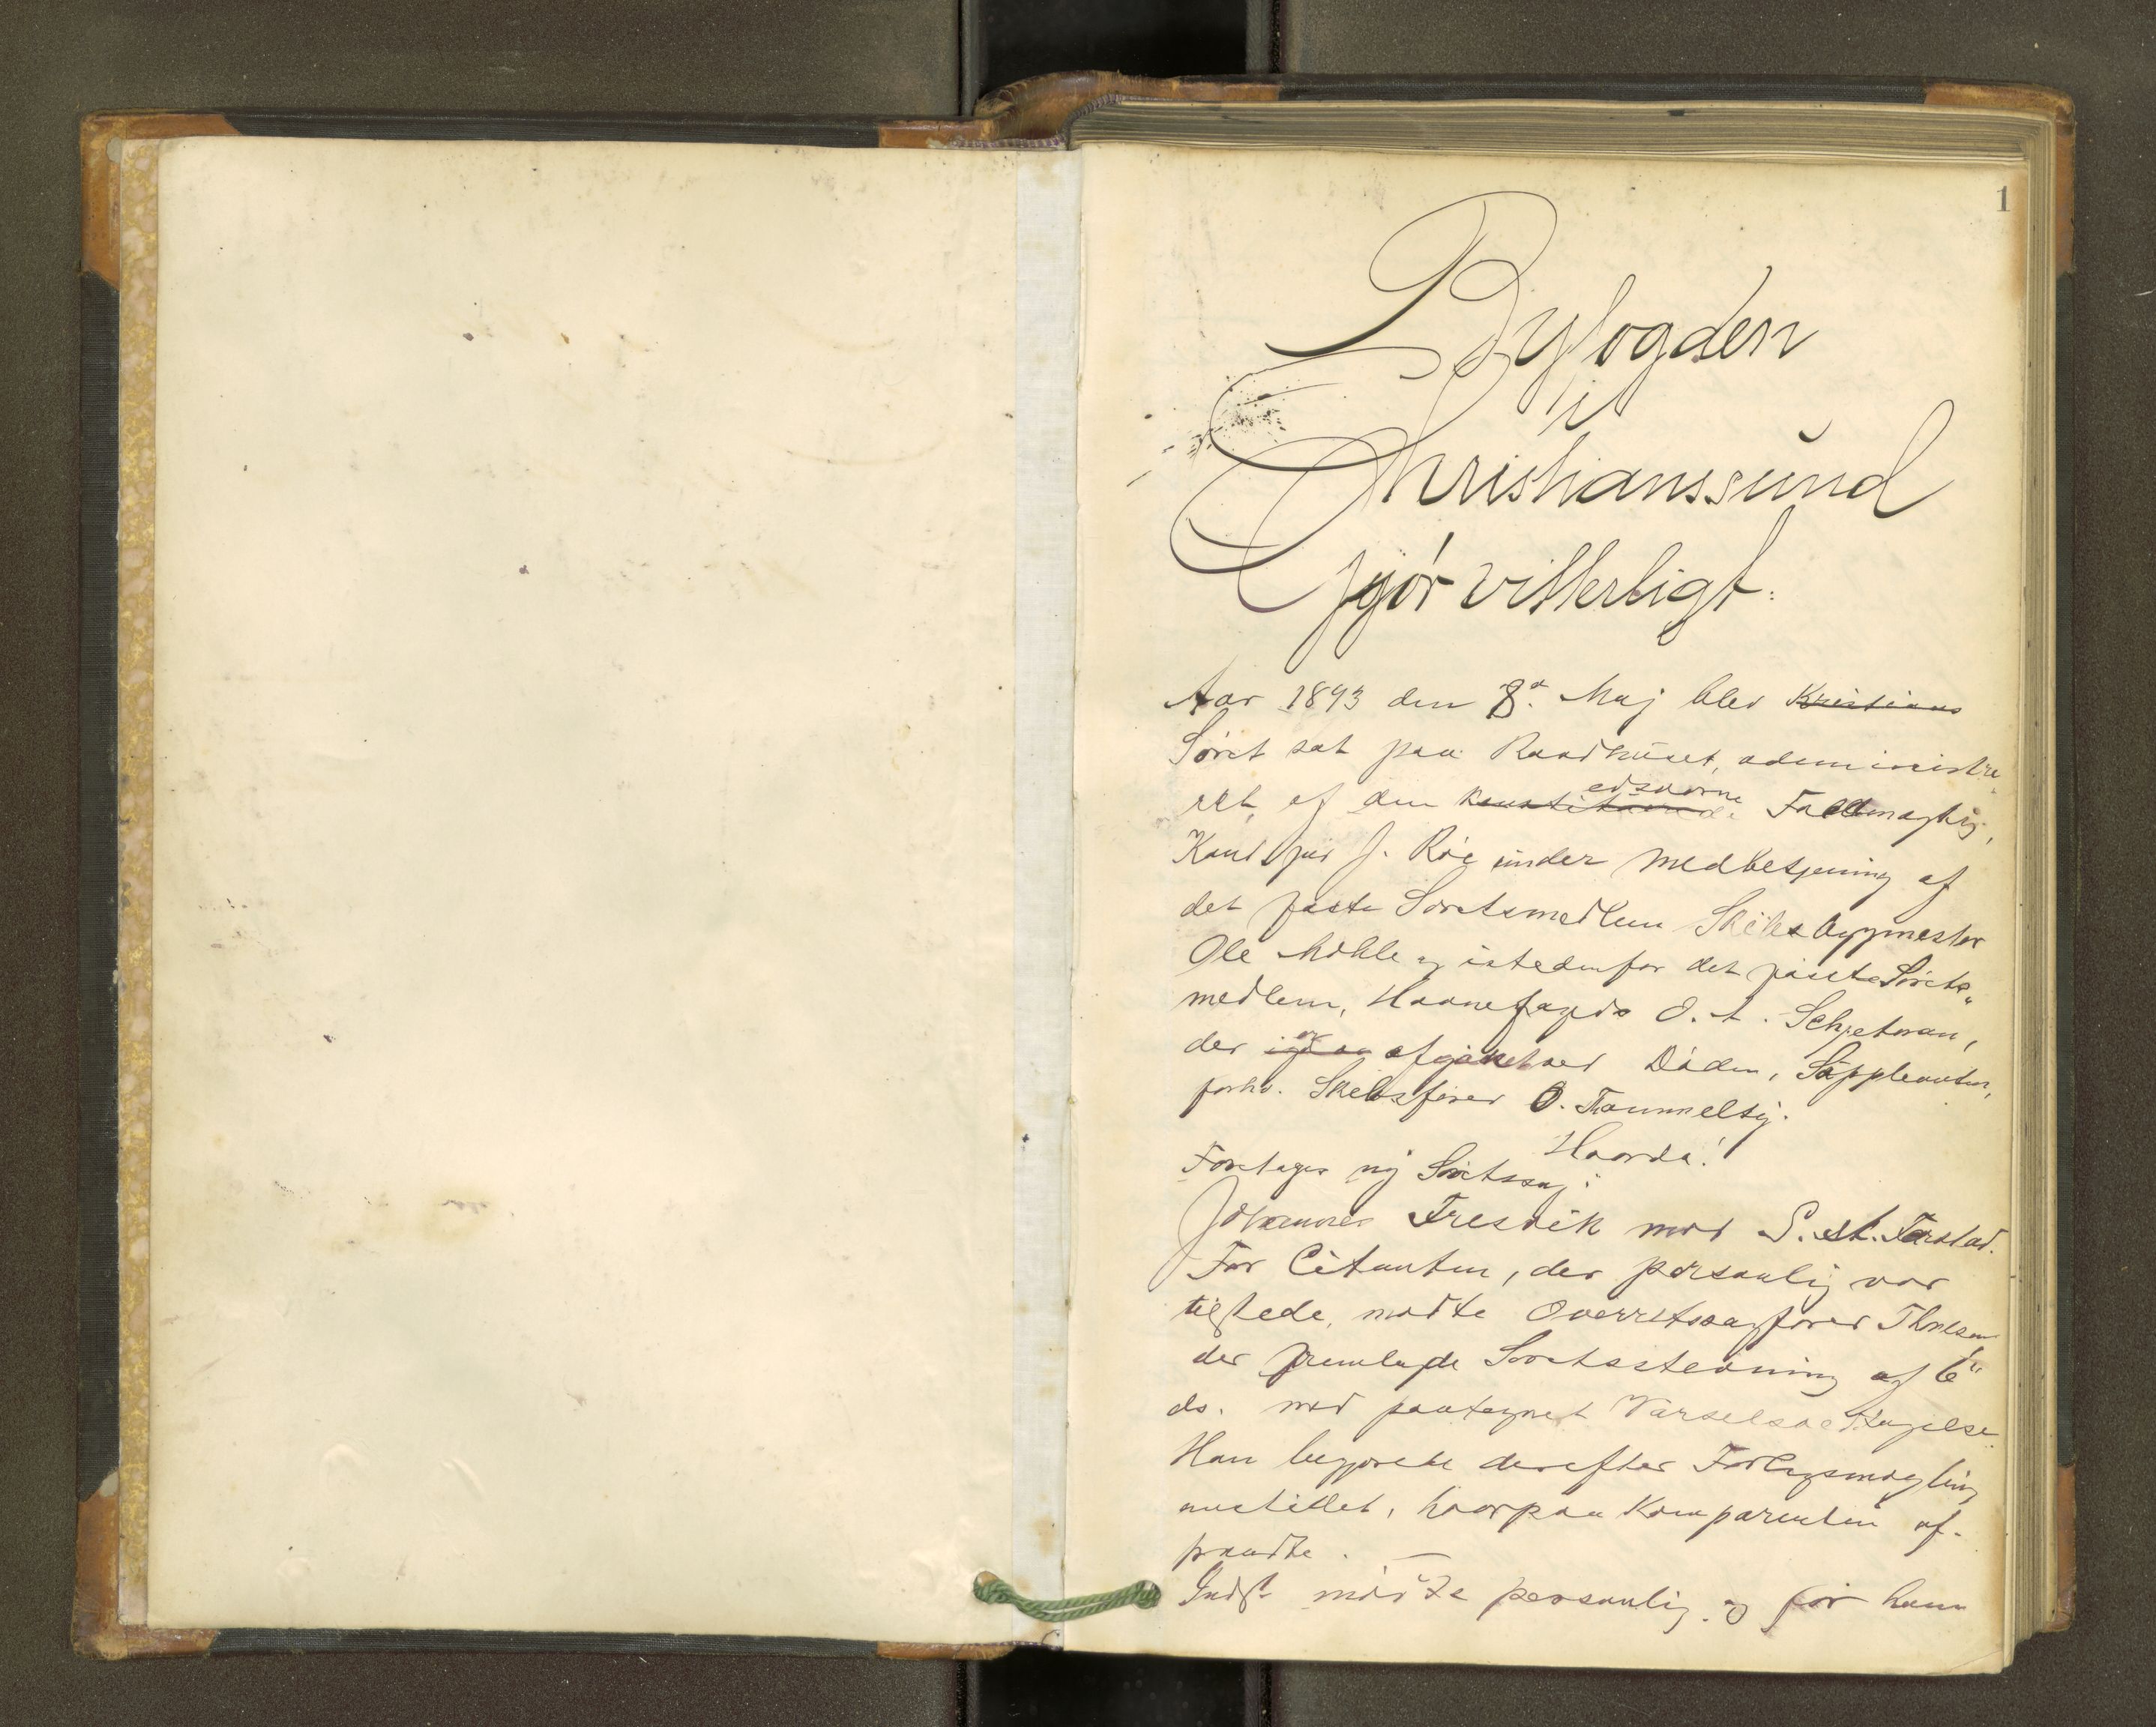 1
Byfogden
i
Christianssund
gjør vitterligt:
Aar 1893 den 8d. Maj blev Kristians
Søret sat paa Raadhuset, administre„
ret, af den konstituerede edsvorne Fuldmægtig,
Kand. jur. J. Røe under Medbetjening af
det faste Søretsmedlem Skibsbygmester
Ole og istedenfor det faste Sørets„
medlem, Havnefogd O. A.
der er afgaaet ved Døden, Suppleanten,
forhv. Skibsfører O.
Hvorda!
Foretages ny Søretssag:
Johannes Fresvik mod S. A. Farstad.
For Citanten, der personlig var
tilstede, mødte Overretssagfører Thoresen
der fremlagde Søretsstevning af 6te
ds. med paategnet Varselsvedtagelse.
Han begjærede derefter Forligsmægling
anstillet, hvorpaa Komparenten af-
traadte. —
Indst. mødte personlig og for ham